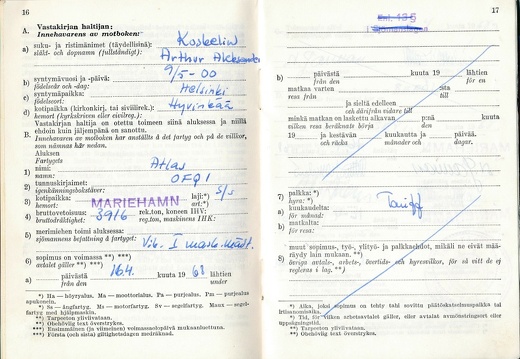 16
A. Vastakirjan haltijan:
Innehavarens av motboken:
a) suku- ja ristimänimet (täydellisinä):
släkt- och dopnamn (fullständigt):
Koskelin
Arthur Aleksander
b) syntymävuosi ja -päivä:
födelseår och -dag:
9/5-00
c) syntymäpaikka:
födelseort:
Helsinki
d) kotipaikka (kirkonkirj. tai siviilirek.):
hemort (kyrkskriven eller civilreg.):
Hyvinkää
Vastakirjan haltija on otettu toimeen siinä aluksessa ja niillä
ehdoin kuin jäljempänä on sanottu.
B. Innehavaren av motboken har anställts å det fartyg och på de villkor,
som nämnas här nedan.
Aluksen
Fartygets
1) nimi:
namn:
Atlas
2) tunnuskirjaimet:
igenkänningsbokstäver:
OFQI
3) kotipaikka:
hemort:
MARIEHAMN
laji:*)
art:*)
s/s
4) bruttovetoisuus:
bruttodräktighet:
3916
rek.ton, koneen IHV:
reg.ton, maskinens IHK:
5) merimiehen toimi aluksessa:
sjömannens befattning å fartyget:
6) sopimus on voimassa **) ***)
avtalet gäller **) ***)
a) päivästä
från den
16.4.
kuuta 19 68 lähtien
under
*) Ha = höyryalus. Ma = moottorialus. Pa = purjealus. Pm = purjealus
apukonein.
*) Ss = ångfartyg. Ms = motorfartyg. Sv = segelfartyg. Maux = segel-
fartyg med hjälpmaskin.
**) Tarpeeton yliviivataan.
**) Obehövlig text överstrykes.
***) Ensimmäinen (ja viimeinen) voimassaolopäivä mukaanluettuna.
***) Första (och sista) giltighetsdagen medräknad.
17
b) päivästä
från den
kuuta 19 lähtien
för en
matkan varten
resa från
sta
till
ja sieltä edelleen
och därifrån vidare till
minkä matkan on laskettu alkavan p:nä kuuta
vilken resa beräknats börja den
19 ja kestävän kuukautta ja päivää.
och räcka månader och dagar.
7) palkka:*)
hyra:*)
Tariff
a) kuukaudelta:
för månad:
b) matkalta:
för resa:
8) muut sopimus-, työ-, ylityö- ja palkkaehdot, mikäli ne eivät määräydy lain mukaan. **)
övriga avtals-, arbets-, övertids- och hyresvillkor, för så vitt de ej
regleras i lag. **)
**) Tarpeeton yliviivataan.
**) Obehövlig text överstrykes.